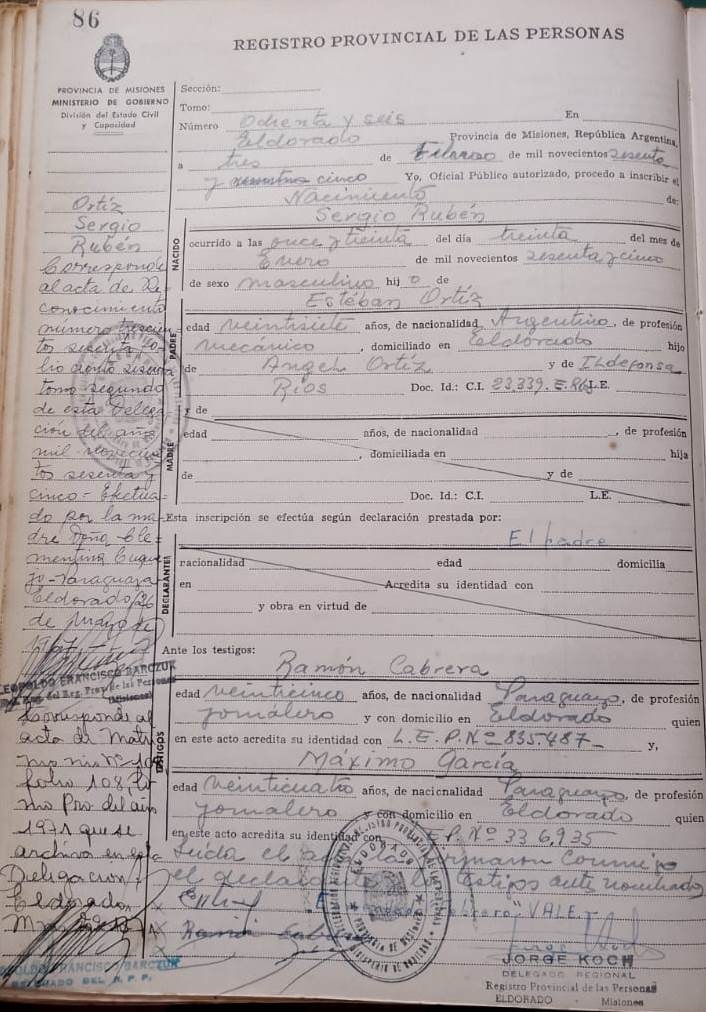 86
REGISTRO PROVINCIAL DE LAS PERSONAS
PROVINCIA DE MISIONES
MINISTERIO DE GOBIERNO
División del Estado Civil
y Capacidad
Sección:
Tomo:
Número Ochenta y seis En
Eldorado Provincia de Misiones, República Argentina,
a tres de de mil novecientos sesenta
y cinco Yo, Oficial Público autorizado, procedo a inscribir el
Nacimiento de:
Sergio Rubén
NACIDO
ocurrido a las once y treinta del día treinta del mes de
Enero de mil novecientos sesenta y cinco
de sexo masculino hijo de
Estéban Ortíz
PADRE
edad veintisiete años, de nacionalidad Argentino, de profesión
mecánico, domiciliado en Eldorado hijo
de Angel Ortíz y de Ildefonsa
Rios Doc. Id.: C.I. 23.339. L.E.
y de
MADRE
edad años, de nacionalidad, de profesión
, domiciliada en hija
de y de
Doc. Id.: C.I. L.E.
Esta inscripción se efectúa según declaración prestada por:
El padre
DECLARANTE
nacionalidad edad domicilia
en Acredita su identidad con
y obra en virtud de
Ante los testigos:
Ramón Cabrera
TESTIGOS
edad veinticinco años, de nacionalidad Paraguayo, de profesión
jornalero y con domicilio en Eldorado quien
en este acto acredita su identidad con L.E.P. Nº 835.487 y,
Máximo García
edad veinticuatro años, de nacionalidad Paraguayo, de profesión
jornalero y con domicilio en Eldorado quien
en este acto acredita su identidad con E.P. Nº 336,935
Leida el acta la firmaron conmigo
el declarante testigos ante nombrados
VALE
JORGE KOCH
DELEGADO REGIONAL
Registro Provincial de las Personas
ELDORADO - Misiones
Ortíz
Sergio
Rubén
Corresponde
al acta de Re
conocimiento
número trescien
tos sesenta fo-
lio ciento sesenta
tomo segundo
de esta Delega
ción del año
mil novecien
tos sesenta y
cinco = Efectua
do por la ma
dre Doña Cle=
mentina
Paraguaya
Eldorado, 26
de Mayo de
LEOPOLDO FRANCISCO BARCZUK
del Reg. Prov. de las Personas
(Misiones)
Corresponde al
acta de Matri
monio Nº
folio 108, To
mo Pro del año
1971 que se
archiva en esta
Delegación
Eldorado,
LEOPOLDO FRANCISCO BARCZUK
DELEGADO DEL R. P. P.
ELDORADO
PROVINCIA DE MISIONES
MINISTERIO DE GOBIERNO